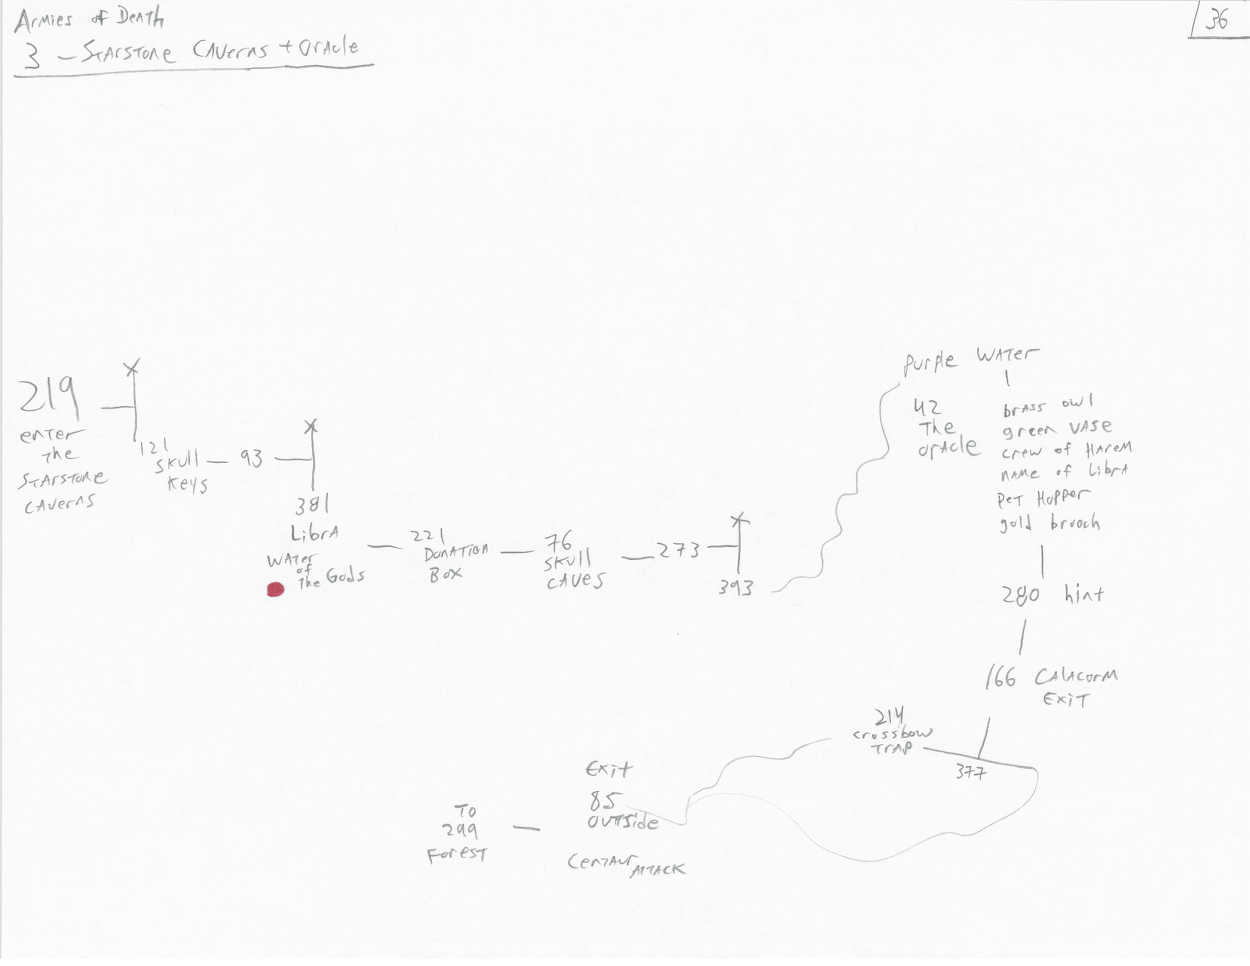 Armies of Death
36
3 - Starstone Caverns + Oracle
219
enter
the
Starstone
Caverns
X
121
Skull
Keys
93
X
381
Libra
Water
of
the Gods
221
Donation
Box
76
Skull
Caves
273
X
393
Purple Water
42
The
Oracle
brass owl
green vase
crew of Harem
name of Libra
Pet Hopper
gold brooch
280 hint
166 Calacorm
Exit
377
214
crossbow
Trap
Exit
85
Outside
Centaur Attack
To
299
Forest